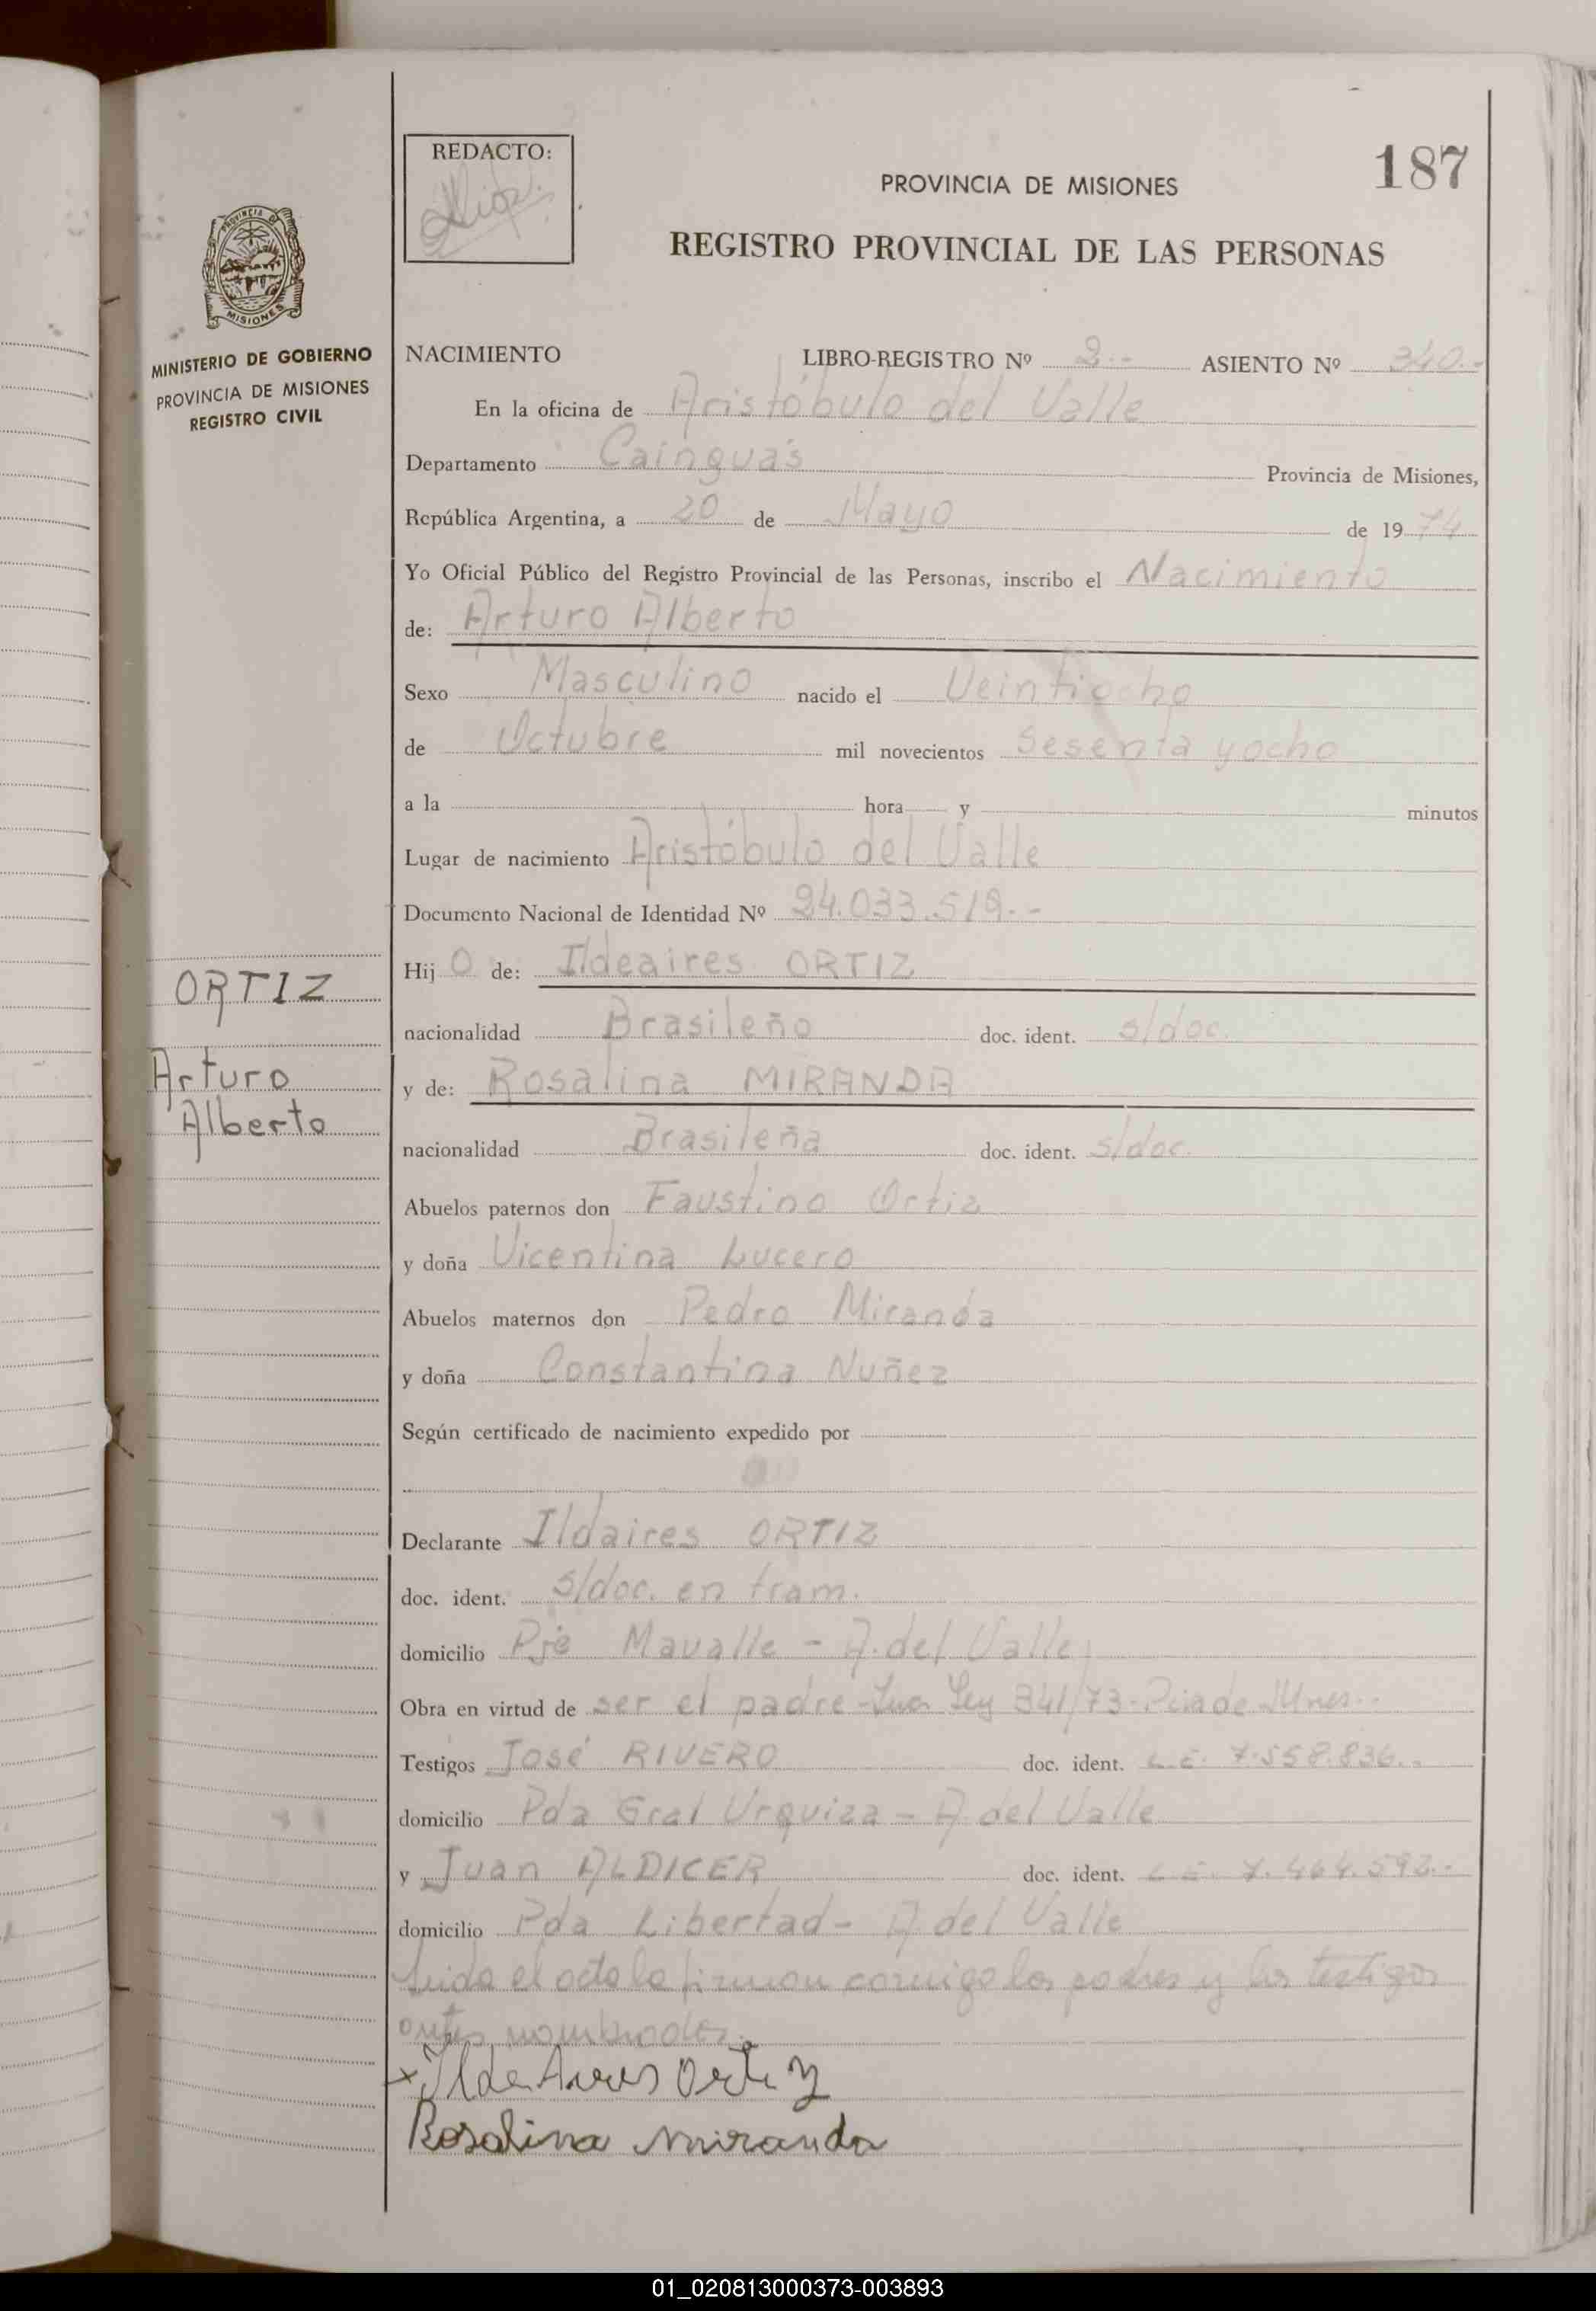 REDACTO:
187
PROVINCIA DE MISIONES
REGISTRO PROVINCIAL DE LAS PERSONAS
PROVINCIA DE
MISIONES
MINISTERIO DE GOBIERNO
PROVINCIA DE MISIONES
REGISTRO CIVIL
NACIMIENTO LIBRO-REGISTRO Nº 2.- ASIENTO Nº 340.-
En la oficina de Aristóbulo del Valle
Departamento Cainguás Provincia de Misiones,
República Argentina, a 20 de Mayo de 1974
Yo Oficial Público del Registro Provincial de las Personas, inscribo el Nacimiento
de: Arturo Alberto
Sexo Masculino nacido el Veintiocho
de Octubre mil novecientos sesenta y ocho
a la hora y minutos
Lugar de nacimiento Aristóbulo del Valle
Documento Nacional de Identidad Nº 24.033.519.-
ORTIZ
Hijo de: Ildeaires ORTIZ
nacionalidad Brasileño doc. ident. s/doc.
Arturo
Alberto
y de: Rosalina MIRANDA
nacionalidad Brasileña doc. ident. s/doc.
Abuelos paternos don Faustino Ortiz
y doña Vicentina Lucero
Abuelos maternos don Pedro Miranda
y doña Constantina Nuñez
Según certificado de nacimiento expedido por
Declarante Ildaires ORTIZ
doc. ident. s/doc. en tram.
domicilio Pje Mavalle - A. del Valle
Obra en virtud de ser el padre - Ley 341/73 - Pcia de Mnes.-
Testigos José RIVERO doc. ident. L.E. 7.558.836.-
domicilio Pda Gral Urquiza - A. del Valle
y Juan ALDICER doc. ident. L.E. 7.464.592.-
domicilio Pda Libertad - A del Valle
Leida el acta la firman conmigo los padres y los testigos
antes nombrados.
x IldeAires Ortiz
Rosalina Miranda
01_020813000373-003893